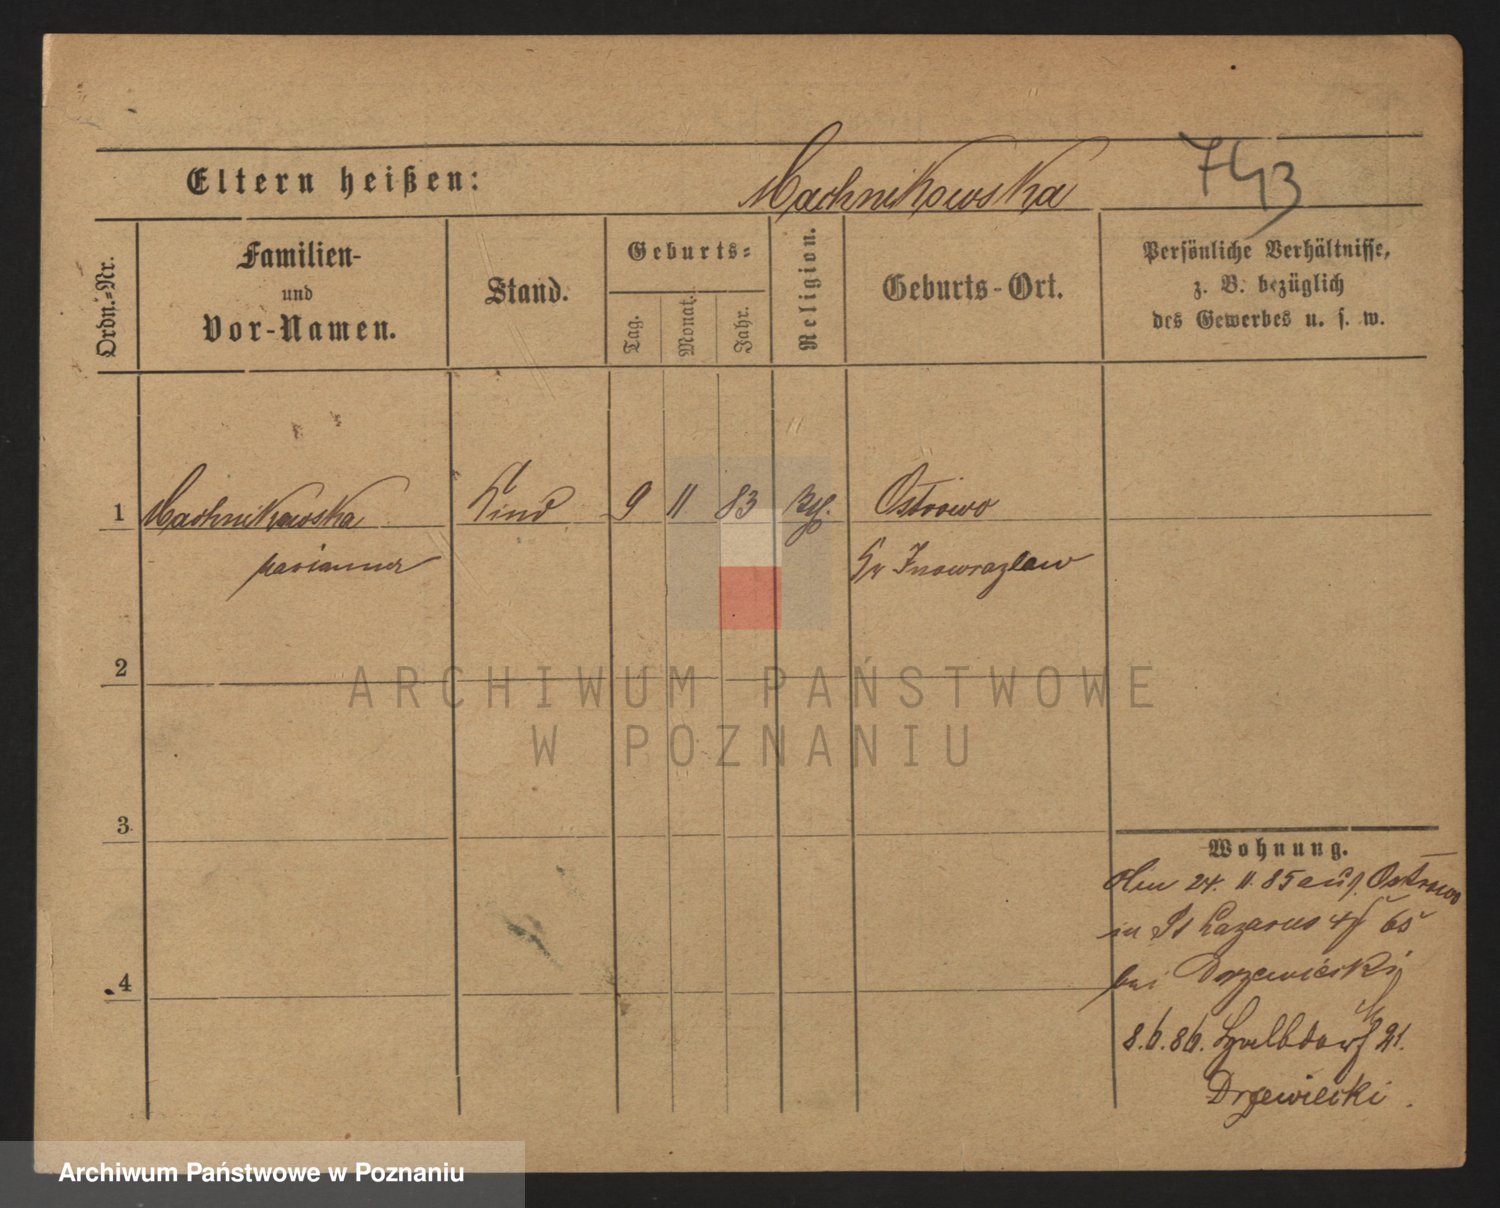 Eltern heißen: Machnikowska 743
Ordn.-Nr.
Familien-
und
Vor-Namen.
Stand.
Geburts-
Tag.
Monat.
Jahr.
Religion.
Geburts-Ort.
Persönliche Verhältnisse,
z. B. bezüglich
des Gewerbes u. s. w.
1 Machnikowska Kind 9 11 83 Ostrowo
Marianna Kr Inowrazlaw
2
ARCHIWUM PAŃSTWOWE
W POZNANIU
3
Wohnung.
24. 11. 85 Ostrowo
in St Lazarus 65
bei Drzewiecki
4
8.6.86. Halbdorf 21.
Drzewiecki.
Archiwum Państwowe w Poznaniu